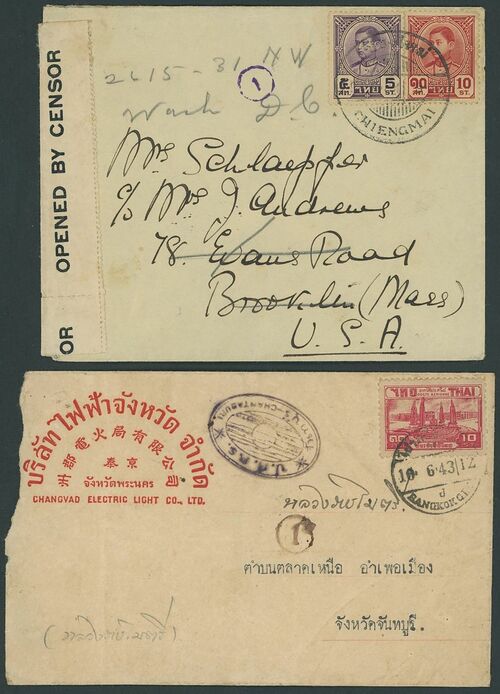 OPENED BY CENSOR
OR
2615-31 NW
Wash D.C.
1
๕ สต. ไทย 5 ST.
๑๐ สต. ไทย 10 ST.
CHIENGMAI
Mrs Schlaepfer
c/o Mrs J. Andrews
78 Evans Road
Brooklin (Mass)
U.S.A.
บริษัท ไฟฟ้าจังหวัด จำกัด
電火局有限
泰京
จังหวัดพระนคร
CHANGVAD ELECTRIC LIGHT CO., LTD.
CHANTABURI
ไทย THAI
๑๐ 10
10. 6.43|12
BANGKOK G.P.O.
1
ตำบนตลาดเหนือ อำเพอเมือง
จังหวัดจันทบุรี.